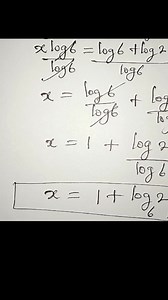 x log6 = log6 + log2
log6 log6
x = log6 + log
log6 log
x = 1 + log2
log6
x = 1 + log₆2